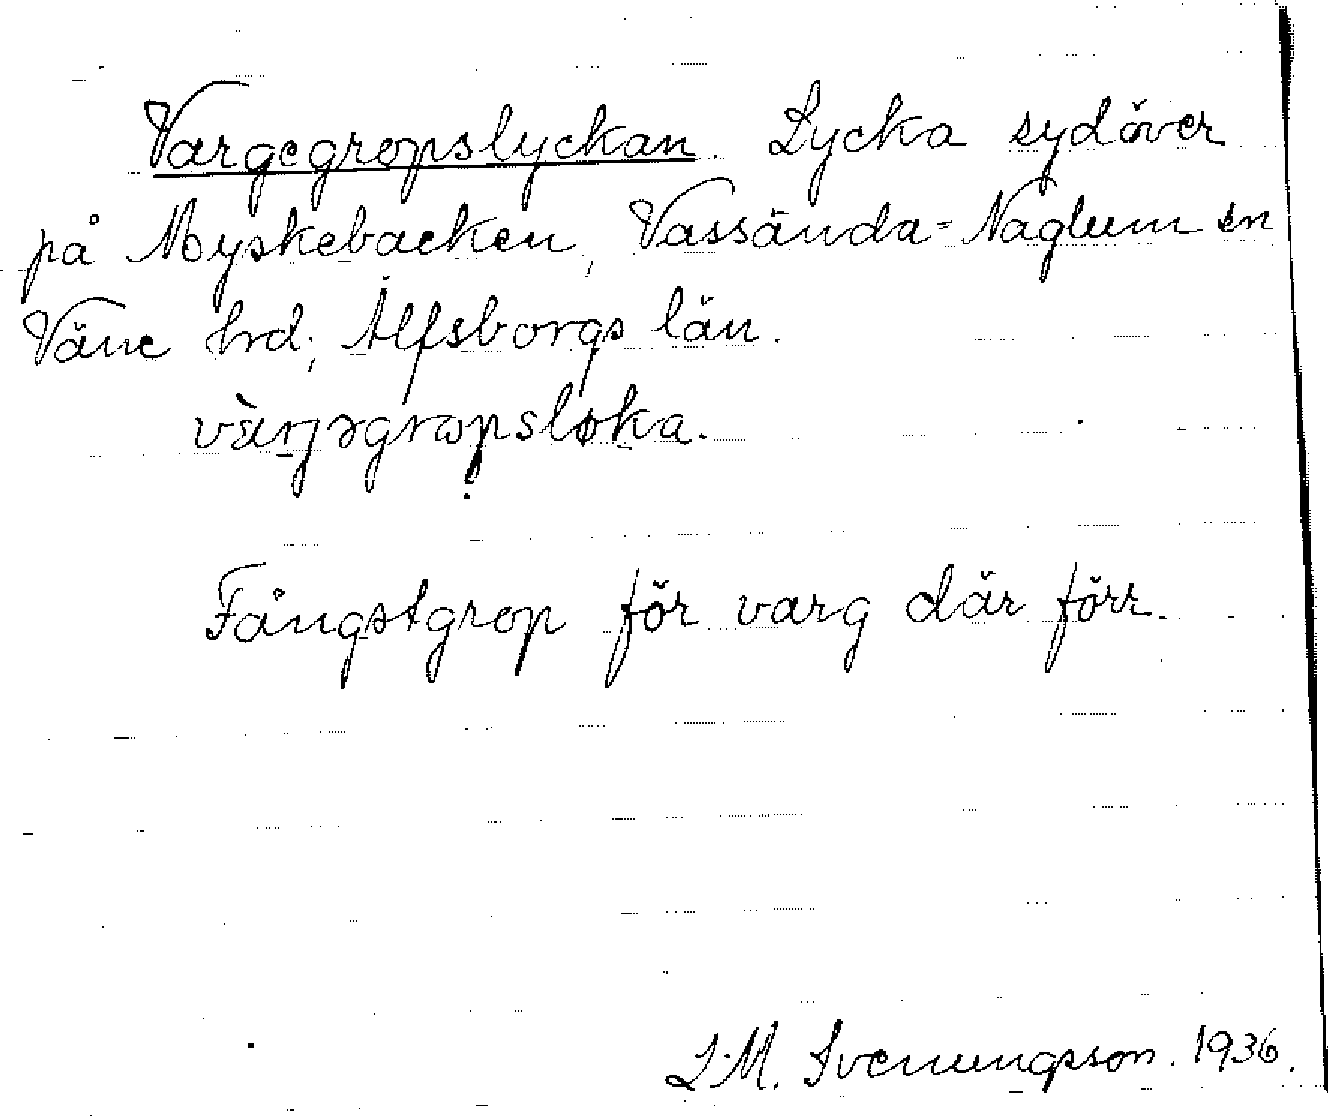 Vargegropslyckan. Lycka sydöver
på Myskebacken, Vassända-Naglum sn
Väne hrd, Älfsborgs län.
Fångstgrop för varg där förr.
L.M. Svenungsson. 1936.